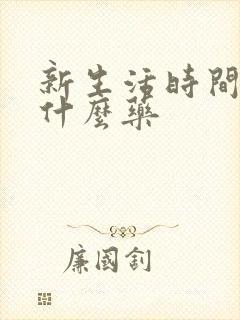 新生活時間
什麼藥
廉國釗